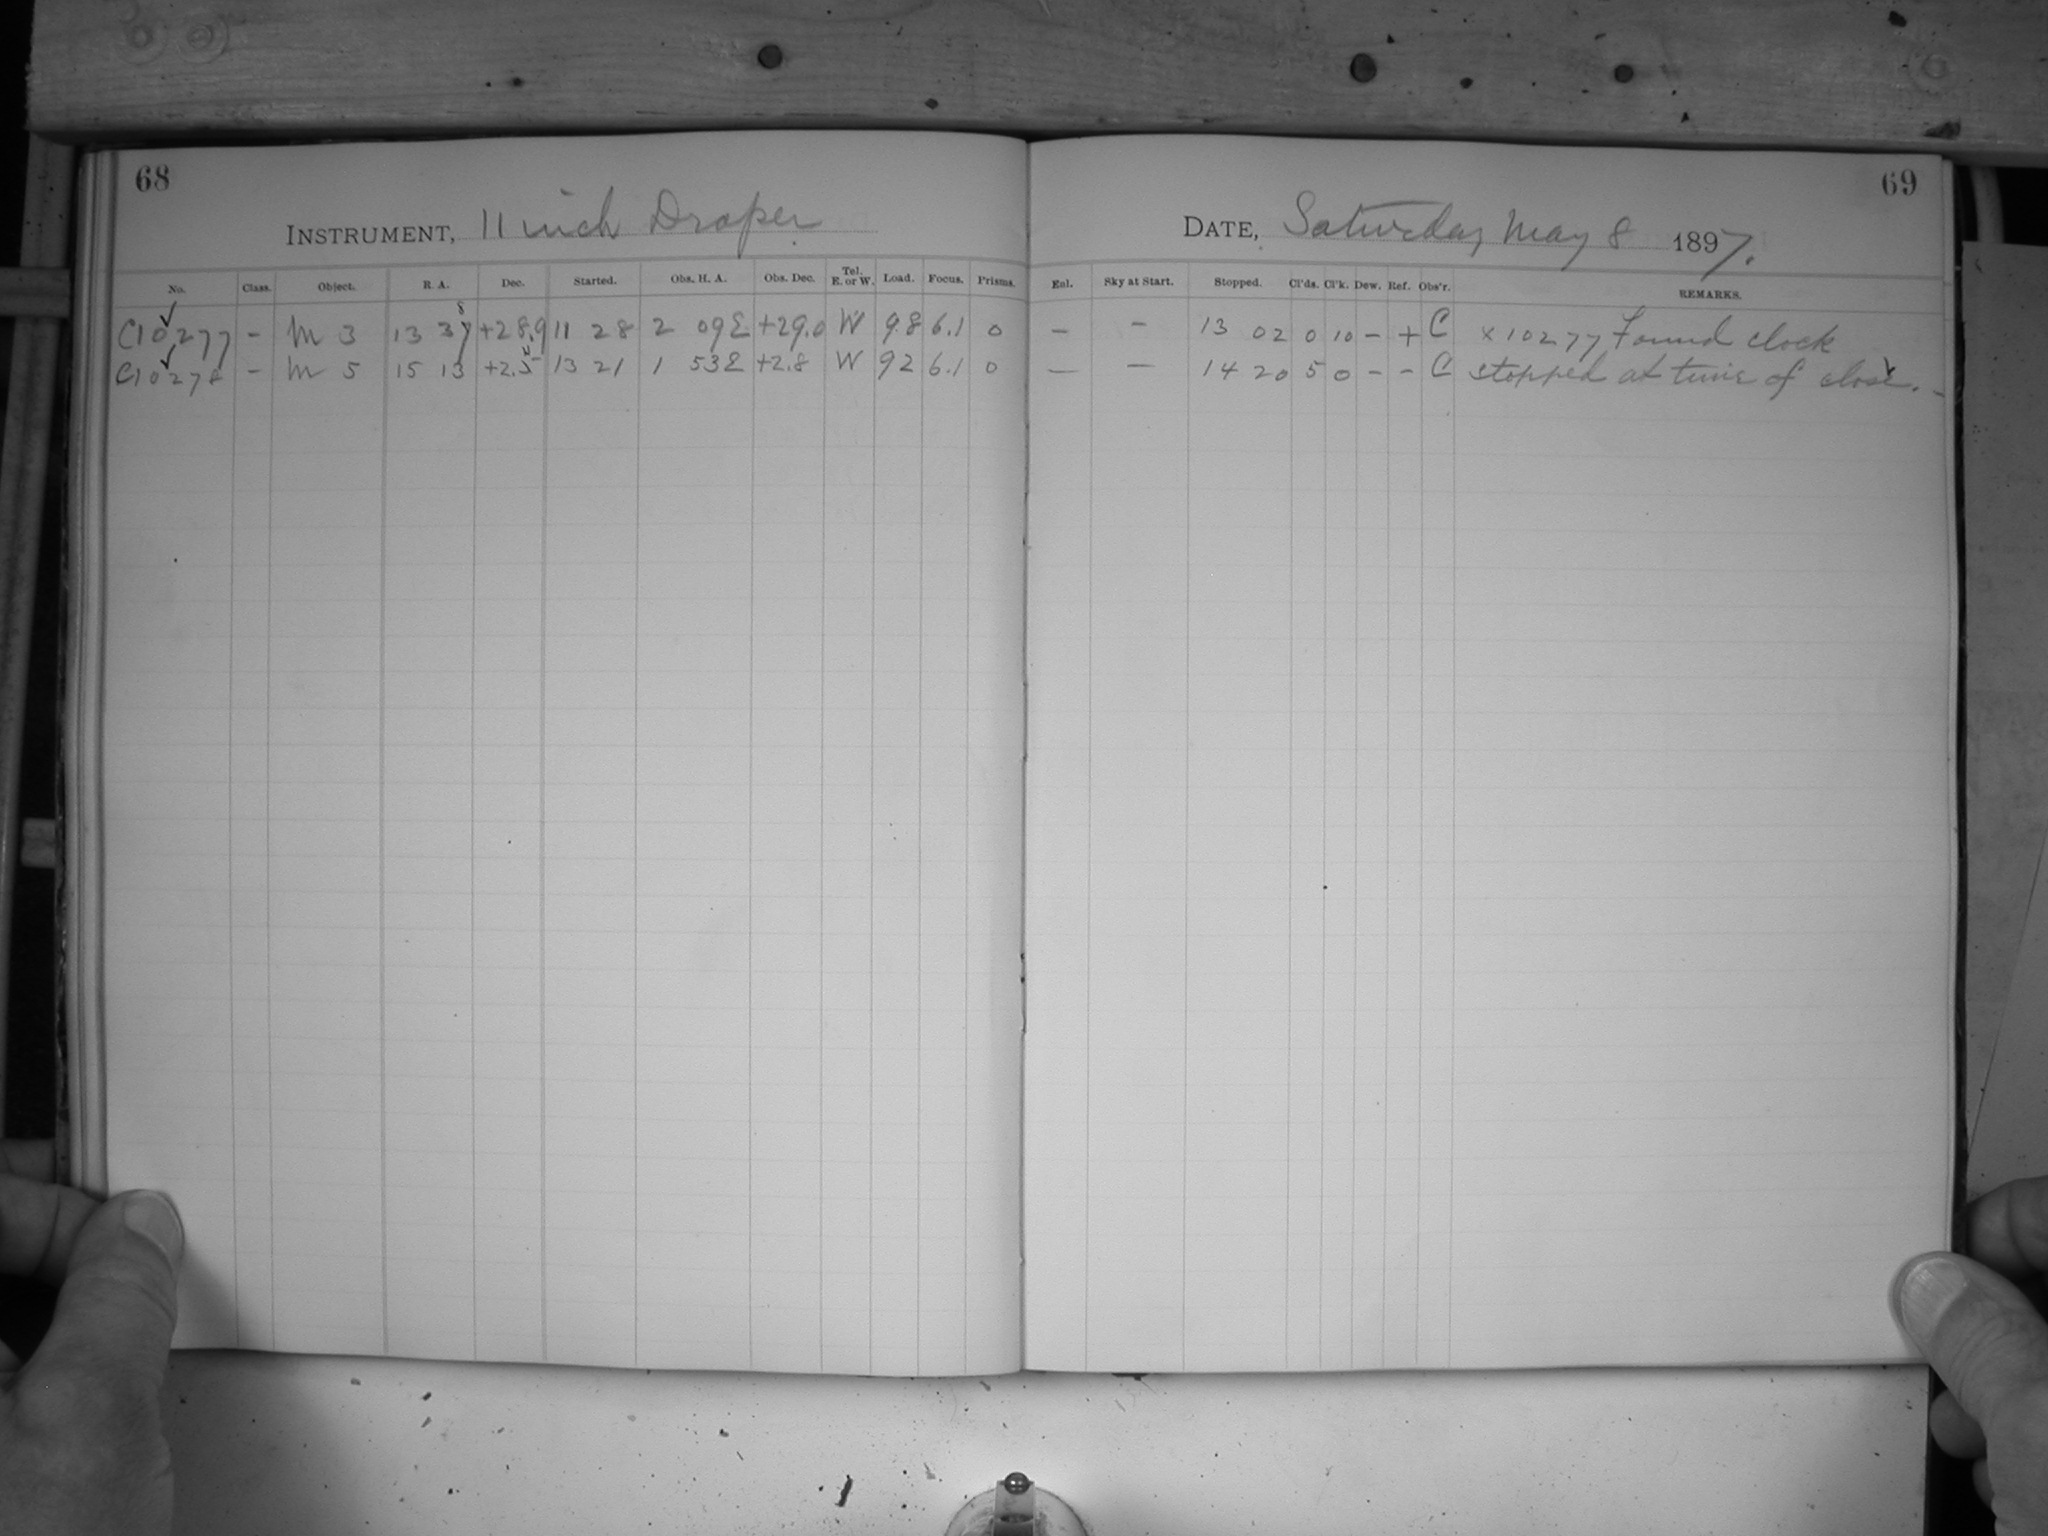 68
INSTRUMENT, 11 inch Draper
No. Class. Object. R. A. Dec. Started. Obs. H. A. Obs. Dec. Tel. E. or W. Load. Focus. Prisms.
8
C10277 - M 3 13 37 +28.9 11 28 2 09E +29.0 W 9.8 6.1 0
C10278 - M 5 15 13 +2.5 13 21 1 53E +2.8 W 92 6.1 0
69
DATE, Saturday May 8 1897.
Enl. Sky at Start. Stopped. Cl'ds. Cl'k. Dew. Ref. Obs'r. REMARKS.
— - 13 02 0 10 - + C x10277 Found clock
— — 14 20 5 0 - - C stopped at time of close.